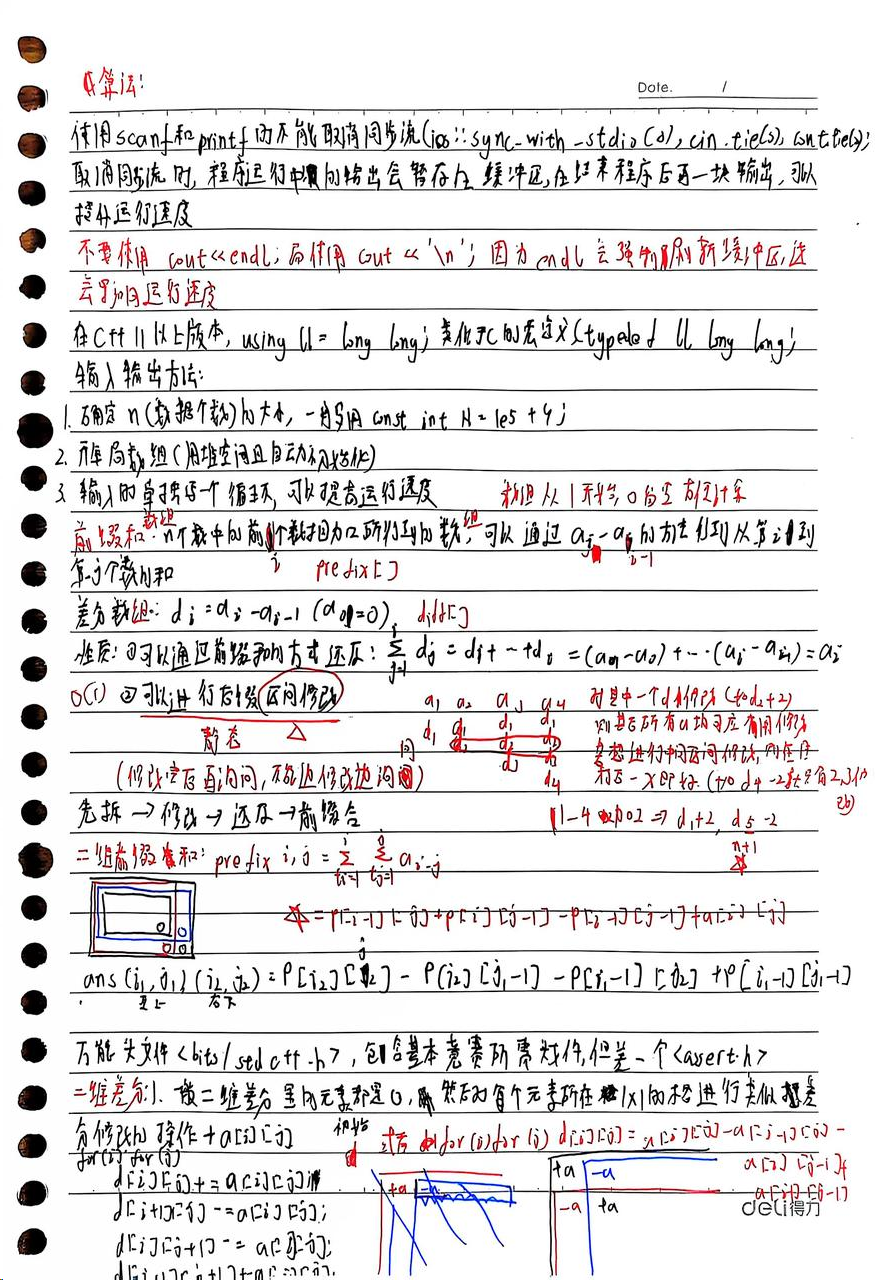 算法:
Date. /
使用scanf和printf时不能取消同步流(ios::sync_with_stdio(0), cin.tie(0), cout.tie(0);
取消同步流时,程序运行中的输出会暂存在缓冲区,在结束程序后再一块输出,可以
提升运行速度
不要使用 cout<<endl; 而使用 cout<<'\n'; 因为endl会强制刷新缓冲区,这
会影响运行速度
在C++11以上版本, using ll = long long; 类似于C的宏定义(typeded ll long long;
输入输出方法:
1. 确定n(数据个数)的大小,一般多用 const int N = 1e5 + 9;
2. 开全局数组(用堆空间且自动初始化)
3. 输入时单独写一个循环,可以提高运行速度
数组从1开始,0留空方便计算
前缀和数组: n个数中的前i个数相加之和所得到的数组,可以通过 aj - ai-1 的方法得到从第i到
第j个数的和 prefix[]
差分数组: di = ai - ai-1 (a0=0), diff[]
性质: ①可以通过前缀和的方式还原: Σ dj = d1 + … + di = (a1-a0) + … (ai - ai-1) = ai
O(1) ②可以进行后缀区间修改
静态 △
a1 a2 a3 a4
d1 d1 d1 d1
d2 d2 d2
d3 d3
d4
对其中一个d修改 (如d2+2)
则其后所有a均可应有用修改
(修改完后再询问,不能边修改边询问)
先拆 → 修改 → 还原 → 前缀合
1-4 +2 => d1+2, d5-2
n+1
二维前缀和: prefix i,j = Σ Σ ai-j
= p[i-1][j]+p[i][j-1]-p[i-1][j-1]+a[i][j]
ans (i1, j1) (i2, j2) = P[i2][j2] - P[i2][j1-1] - P[i1-1][j2] + P[i1-1][j1-1]
左上 右下
万能头文件<bits/stdc++.h>, 包含基本竞赛所需文件,但差一个<assert.h>
二维差分: 1. 故二维差分里的元素都是0, 然后对每个元素所在1x1的格进行类似差
分修改的操作 + a[i][j] 初始
或者 for(i) for(j) d[i][j] = a[i][j]-a[i-1][j]-
a[i][j-1]+
a[i-1][j-1]
for(i) for(j)
d[i][j] += a[i][j];
d[i+1][j] -= a[i][j];
d[i][j+1] -= a[i][j];
d[i+1][j+1] += a[i][j];
+a -a
-a +a
deli得力